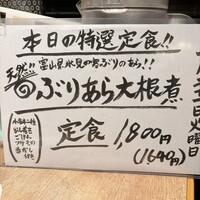 本日の特選定食!!
天然!!
富山県氷見の寒ぶりのあら!!
ぶりあら大根煮
定食 1,800円
(1640円)
小鉢二種
ごはん
付き
火曜日